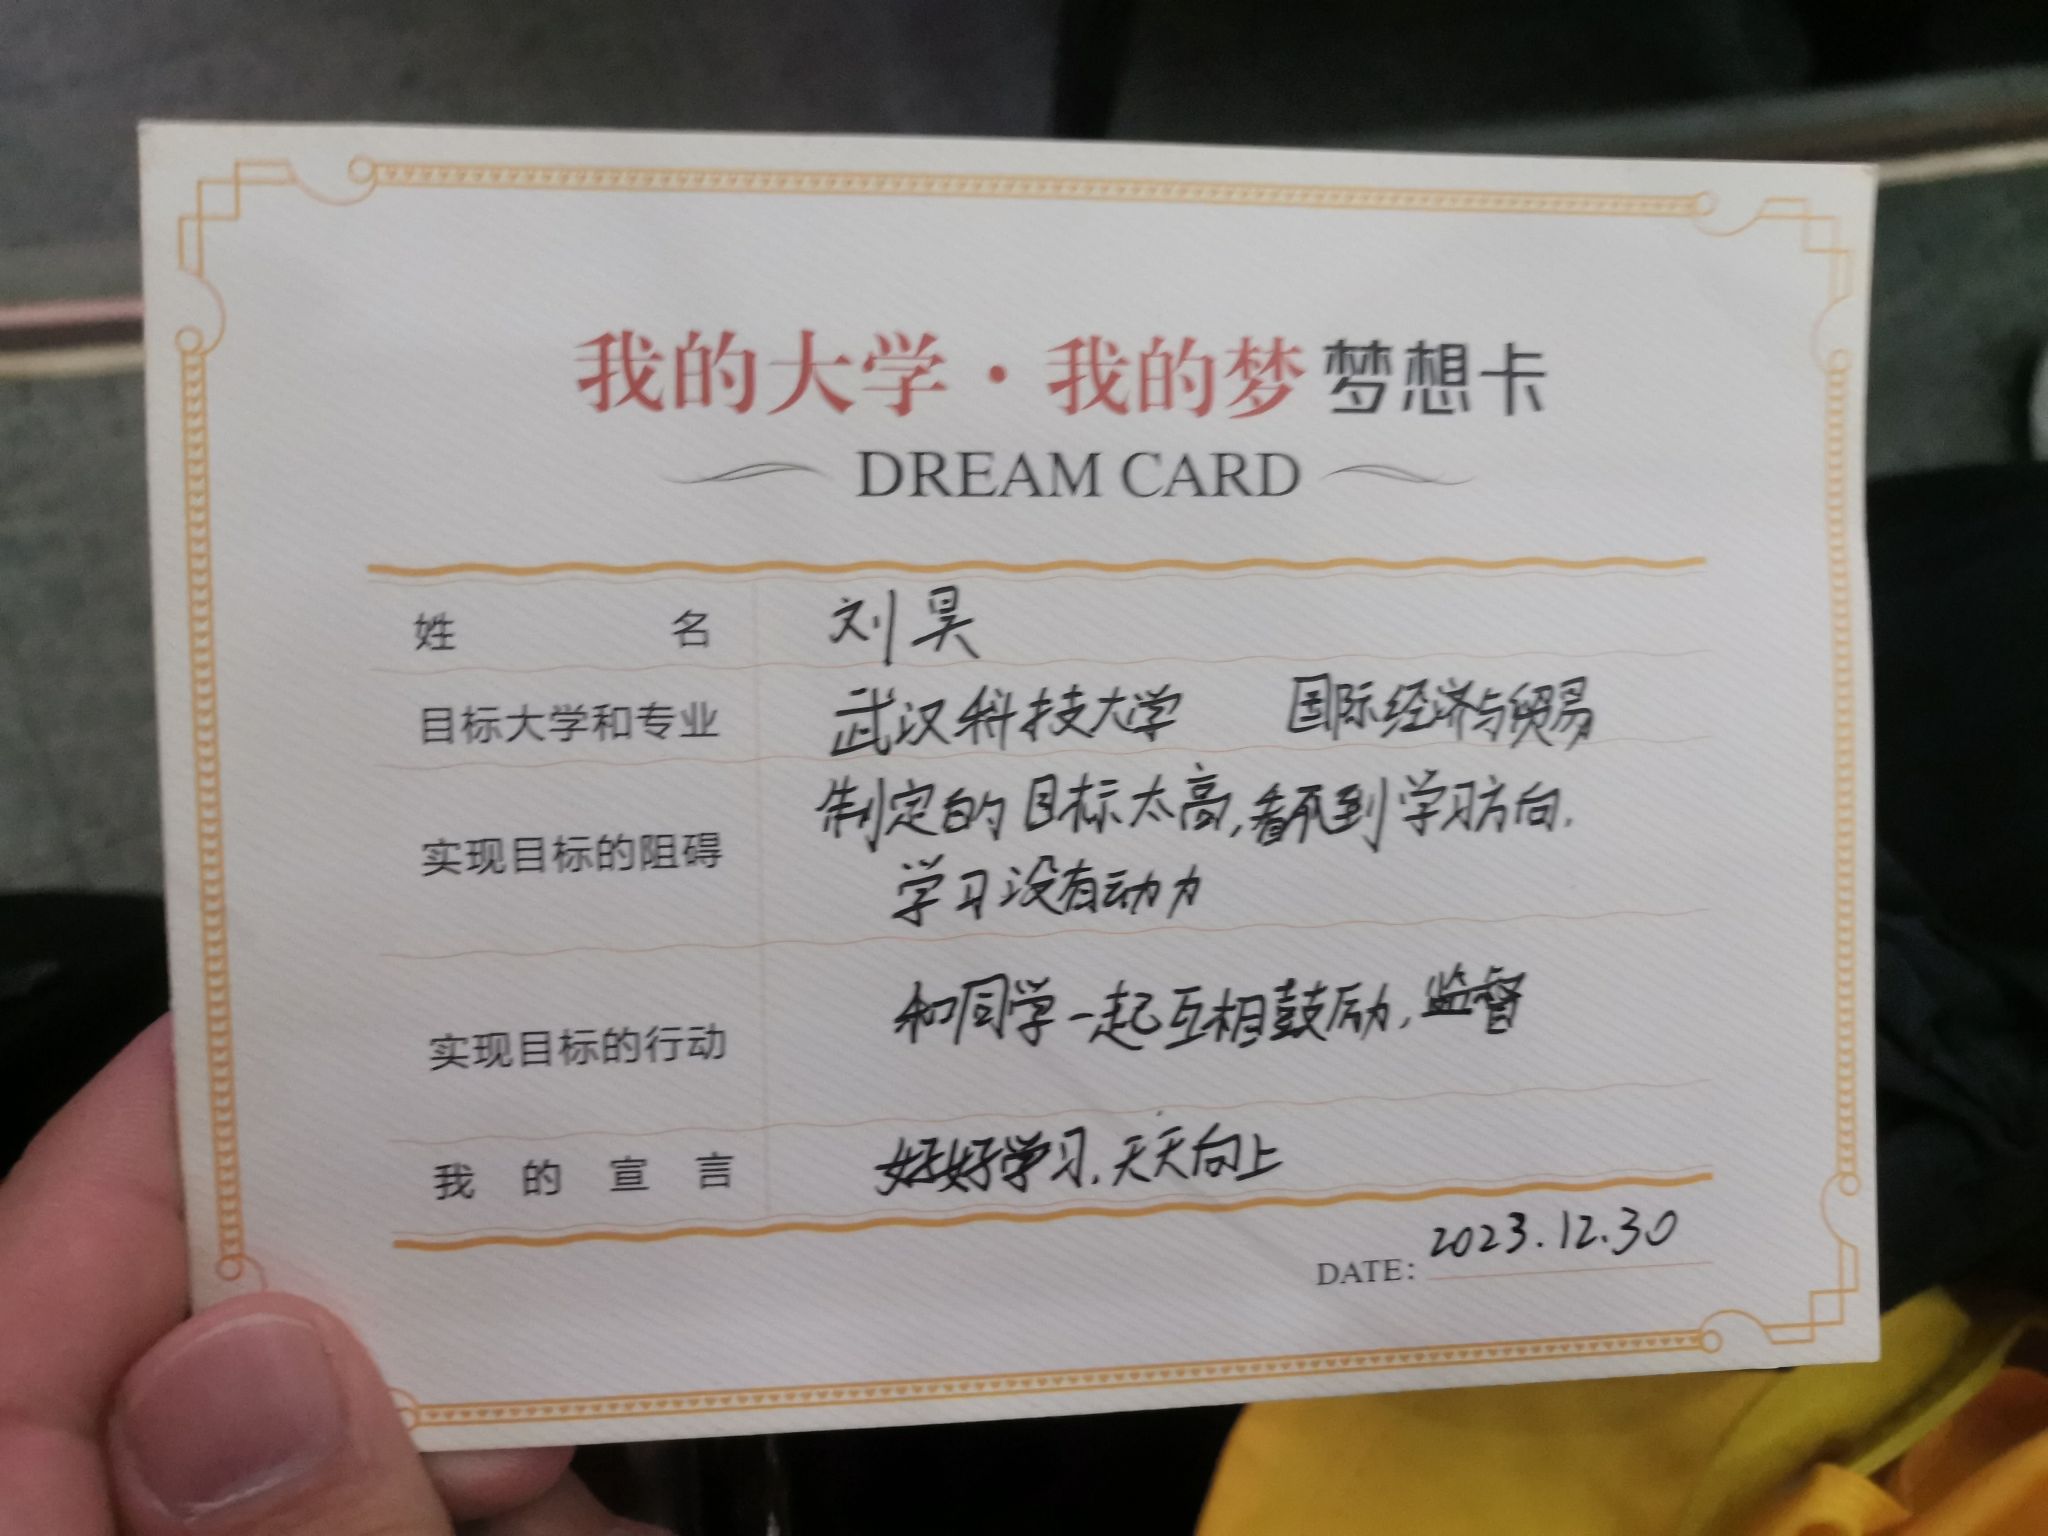 我的大学·我的梦 梦想卡
DREAM CARD
姓名 刘昊
目标大学和专业 武汉科技大学 国际经济与贸易
实现目标的阻碍 制定的目标太高,看不到学习方向.
学习没有动力
实现目标的行动 和同学一起互相鼓励,监督
我的宣言 好好学习.天天向上
DATE: 2023.12.30